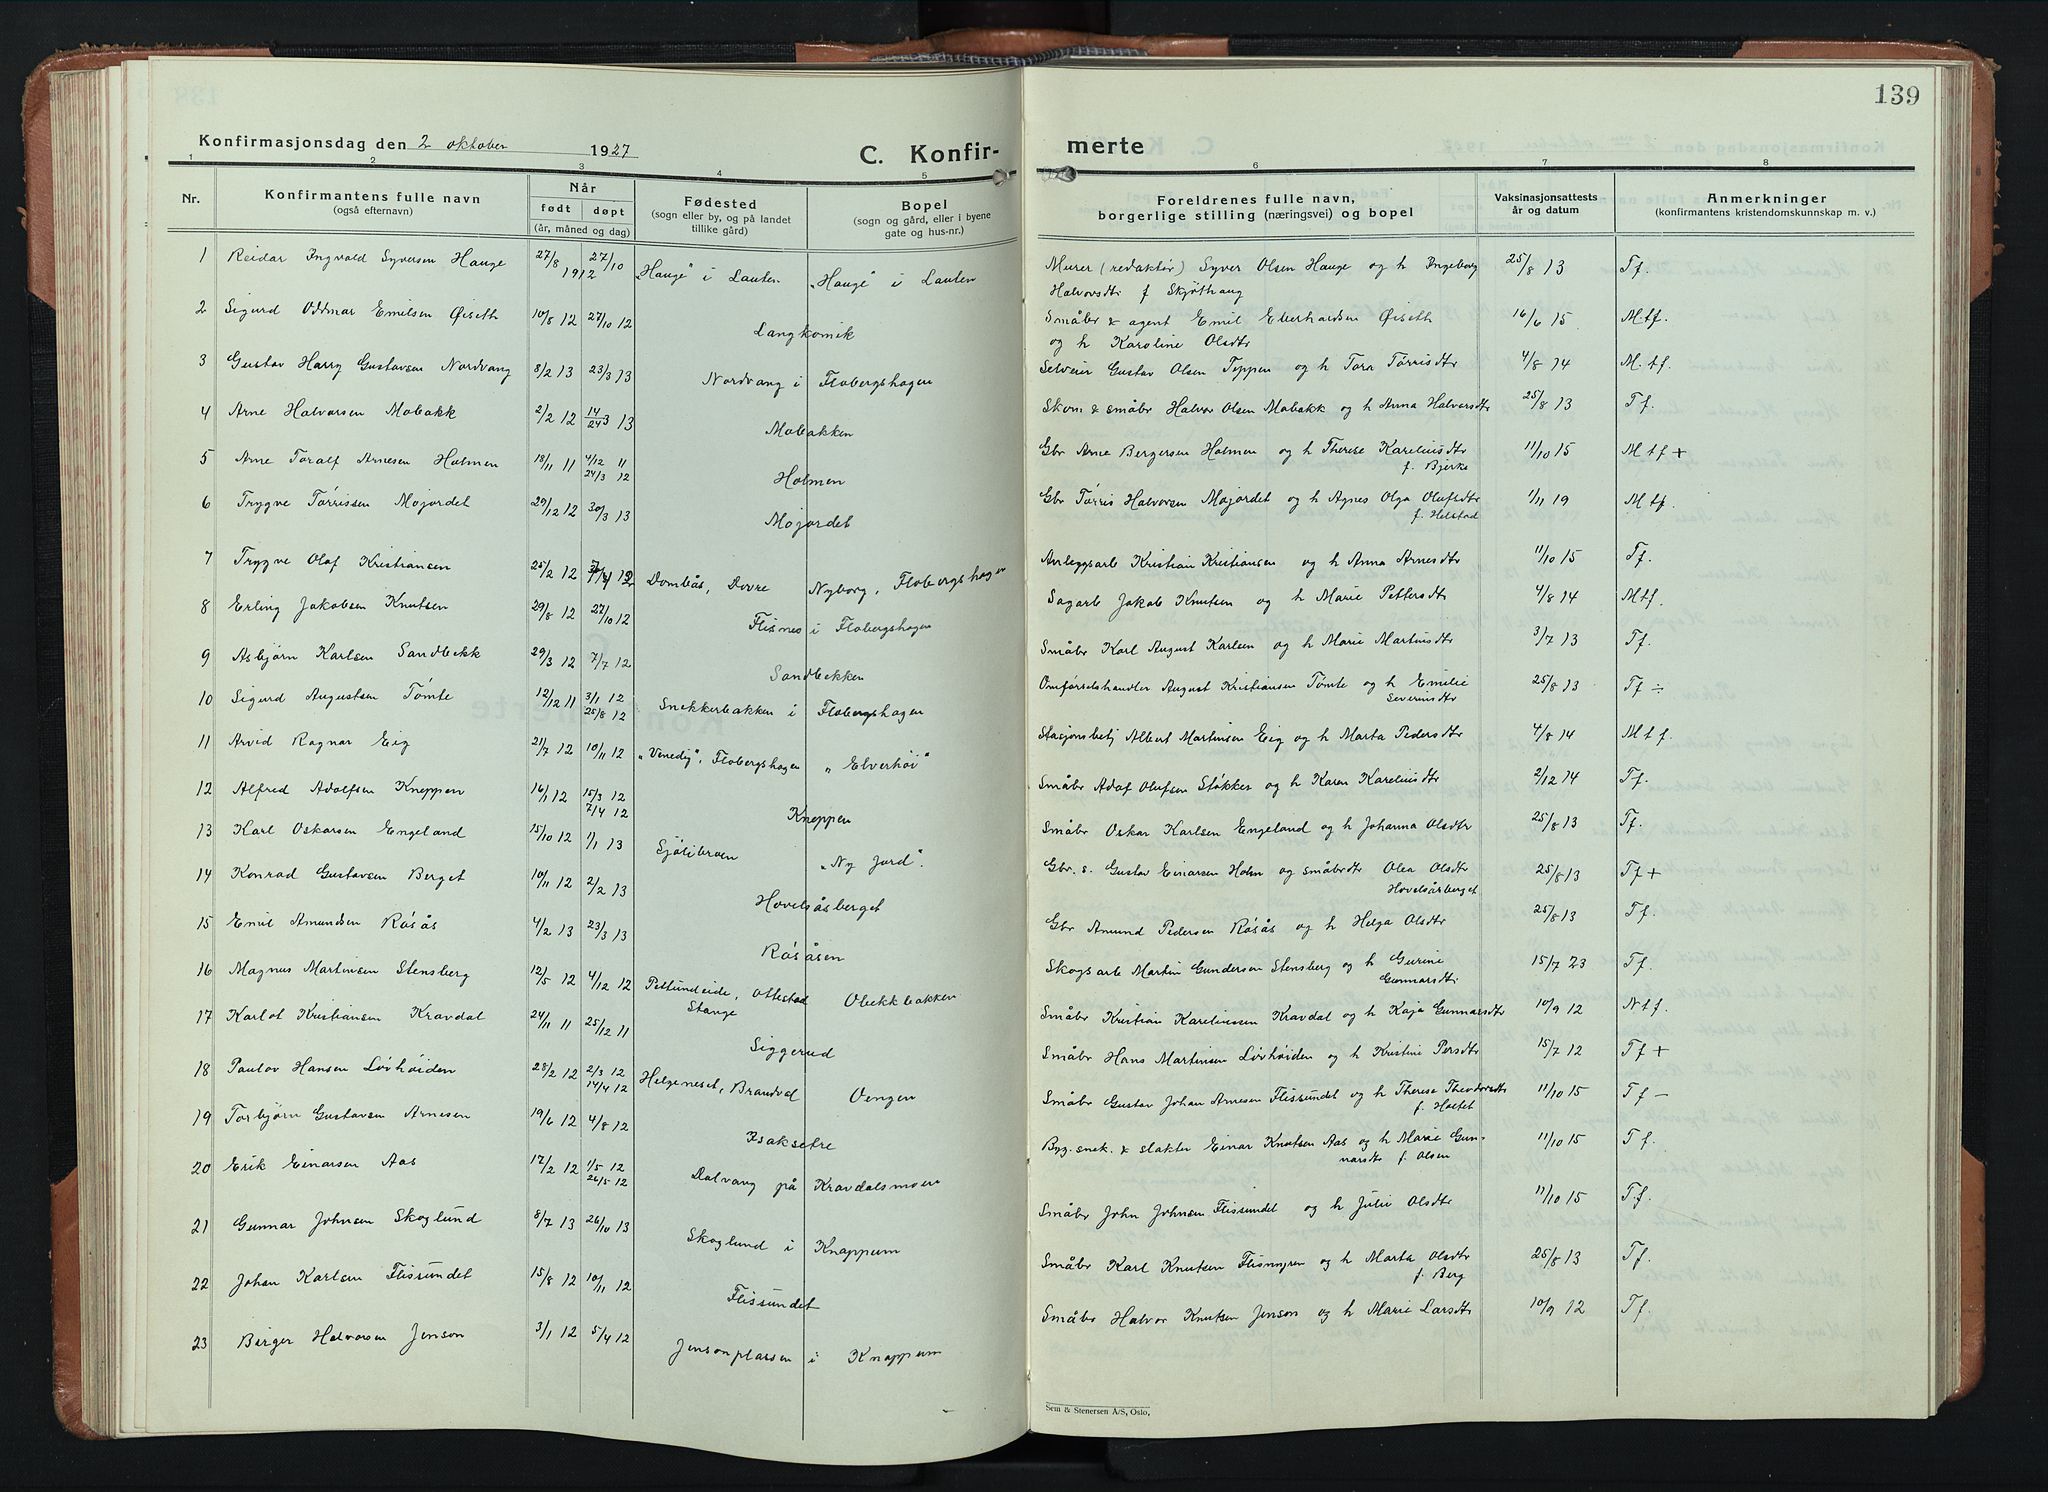 139
Konfirmasjonsdag den 2 oktober 1927
C. Konfir-
merte
1 2 3 4 5 6 7 8
Nr.
Konfirmantens fulle navn
(også efternavn)
Når
født døpt
(år, måned og dag)
Fødested
(sogn eller by, og på landet
tillike gård)
Bopel
(sogn og gård, eller i byene
gate og hus-nr.)
Foreldrenes fulle navn,
borgerlige stilling (næringsvei) og bopel
Vaksinasjonsattests
år og datum
Anmerkninger
(konfirmantens kristendomskunnskap m. v.)
1 Reidar Ingvald Syversen Hauge 27/8 27/10 1912 „Hauge" i Lauten „Hauge" i Lauten Murer (redaktør) Syver Olsen Hauge og h Ingeborg 25/8 13 Tf.
Halvorsdtr f Skjøthaug
2 Sigurd Oddmar Emilsen Øiseth 10/8 12 27/10 12 Langkomik Småbr & agent Emil Ellerhardsen Øiseth 16/6 15 M.tf.
og h Karoline Olsdtr
3 Gustav Harry Gustavsen Nordvang 8/2 13 23/3 13 Nordvang i Flobergshagen Selveier Gustav Olsen Teppen og h Tora Tørrisdtr 4/8 14 M.tf.
4 Arne Halvorsen Mobakk 2/2 12 14/24 3 13 Mobakken Skom & småbr Halvor Olsen Mobakk og h Anna Halvorsdtr 25/8 13 Tf.
5 Arne Toralf Arnesen Holmen 18/11 11 4/12 11 Holmen Gbr Arne Bergersen Holmen og h Therese Kareliusdtr 11/10 15 M tf +
24/3 12 f. Bjerke
6 Trygve Tørrissen Mojordet 29/12 12 30/3 13 Mojordet Gbr Tørris Halvorsen Mojordet og h Agnes Olga Olufsdtr 1/11 19 M tf.
f. Helstad
7 Trygve Olaf Kristiansen 25/2 12 Dombås, Dovre Nyborg, Flobergshagen Anleggsarb Kristian Kristiansen og h Anna Arnesdtr 11/10 15 Tf.
8 Erling Jakobsen Knutsen 29/8 12 27/10 12 Flisnes i Flobergshagen Sagarb Jakob Knutsen og h Marie Pettersdtr 4/8 14 Mtf.
9 Asbjørn Karlsen Sandbekk 29/3 12 7/7 12 Sandbekken Småbr Karl August Karlsen og h Marie Martinsdtr 3/7 13 Tf.
10 Sigurd Augustsen Tømte 12/12 11 3/1 12 Snekkerbakken i Flobergshagen Omførselshandler August Kristiansen Tømte og h Emilie 25/8 13 Tf ÷
25/8 12 Severinsdtr
11 Arvid Ragnar Eig 21/7 12 10/11 12 „Venedig", Flobergshagen „Elverhøi" Stasjonsbetj Albert Martinsen Eig og h Marta Pedersdtr 4/8 14 M t f.
12 Alfred Adolfsen Kneppen 16/1 12 15/3 12 Kneppen Småbr Adolf Olufsen Stokker og h Karen Kareliusdtr 2/12 14 Tf.
7/4 12
13 Karl Oskarsen Engeland 15/10 12 1/1 13 Sjølibroen „Ny Jord". Småbr Oskar Karlsen Engeland og h Johanna Olsdtr 25/8 13 Tf.
14 Konrad Gustavsen Berget 10/11 12 2/2 13 Hovelsåsberget Gbr. s. Gustav Einarsen Holm og småbrdtr Olea Olsdtr 25/8 13 Tf +
Hovelsåsberget
15 Emil Amundsen Råsås 4/2 13 23/3 13 Råsåsen Gbr Amund Pedersen Råsås og h Helga Olsdtr 25/8 13 Tf.
16 Magnus Martinsen Stensberg 12/5 12 4/12 12 Pettundeide, Ottestad Obekkbakken Skogsarb Martin Gundersen Stensberg og h Gurine 15/7 23 Tf.
Stange Gunnarsdtr
17 Karlot Kristiansen Kravdal 24/11 11 25/12 11 Siggerud Småbr Kristian Kareliussen Kravdal og h Kaja Gunnarsdtr 10/9 12 Ntf.
18 Paulov Hansen Lövhöiden 28/2 12 2/3 12 Helgeneset, Brandval Vengen Småbr Hans Martinsen Lövhöiden og h Kristine Persdtr 15/7 12 Tf +
14/4 12
19 Torbjørn Gustavsen Arnesen 19/6 12 4/8 12 Isaksetre Småbr Gustav Johan Arnesen Flissundet og h Therese Theodorsdtr 11/10 15 Tf –
f. Holtet
20 Erik Einarsen Aas 17/2 12 1/5 12 Dalvang på Kravdalsmoen Byg. snek. & slakter Einar Knutsen Aas og h Marie Gun- 11/10 15 T f.
26/5 12 narsdtr f. Olsen
21 Gunnar Johnsen Skoglund 8/7 13 26/10 13 Skoglund i Knappum Småbr John Johnsen Flissundet og h Julie Olsdtr 11/10 15 T.f.
22 Johan Karlsen Flissundet 15/8 12 10/11 12 Flissundet Småbr Karl Knutsen Flismyren og h Marta Olsdtr 25/8 13 Tf.
f. Berg
23 Birger Halvorsen Jenson 3/1 12 5/4 12 Jensonplassen i Knappum Småbr Halvor Knutsen Jenson og h Marie Larsdtr 10/9 12 Tf.
Sem & Stenersen A/S, Oslo.